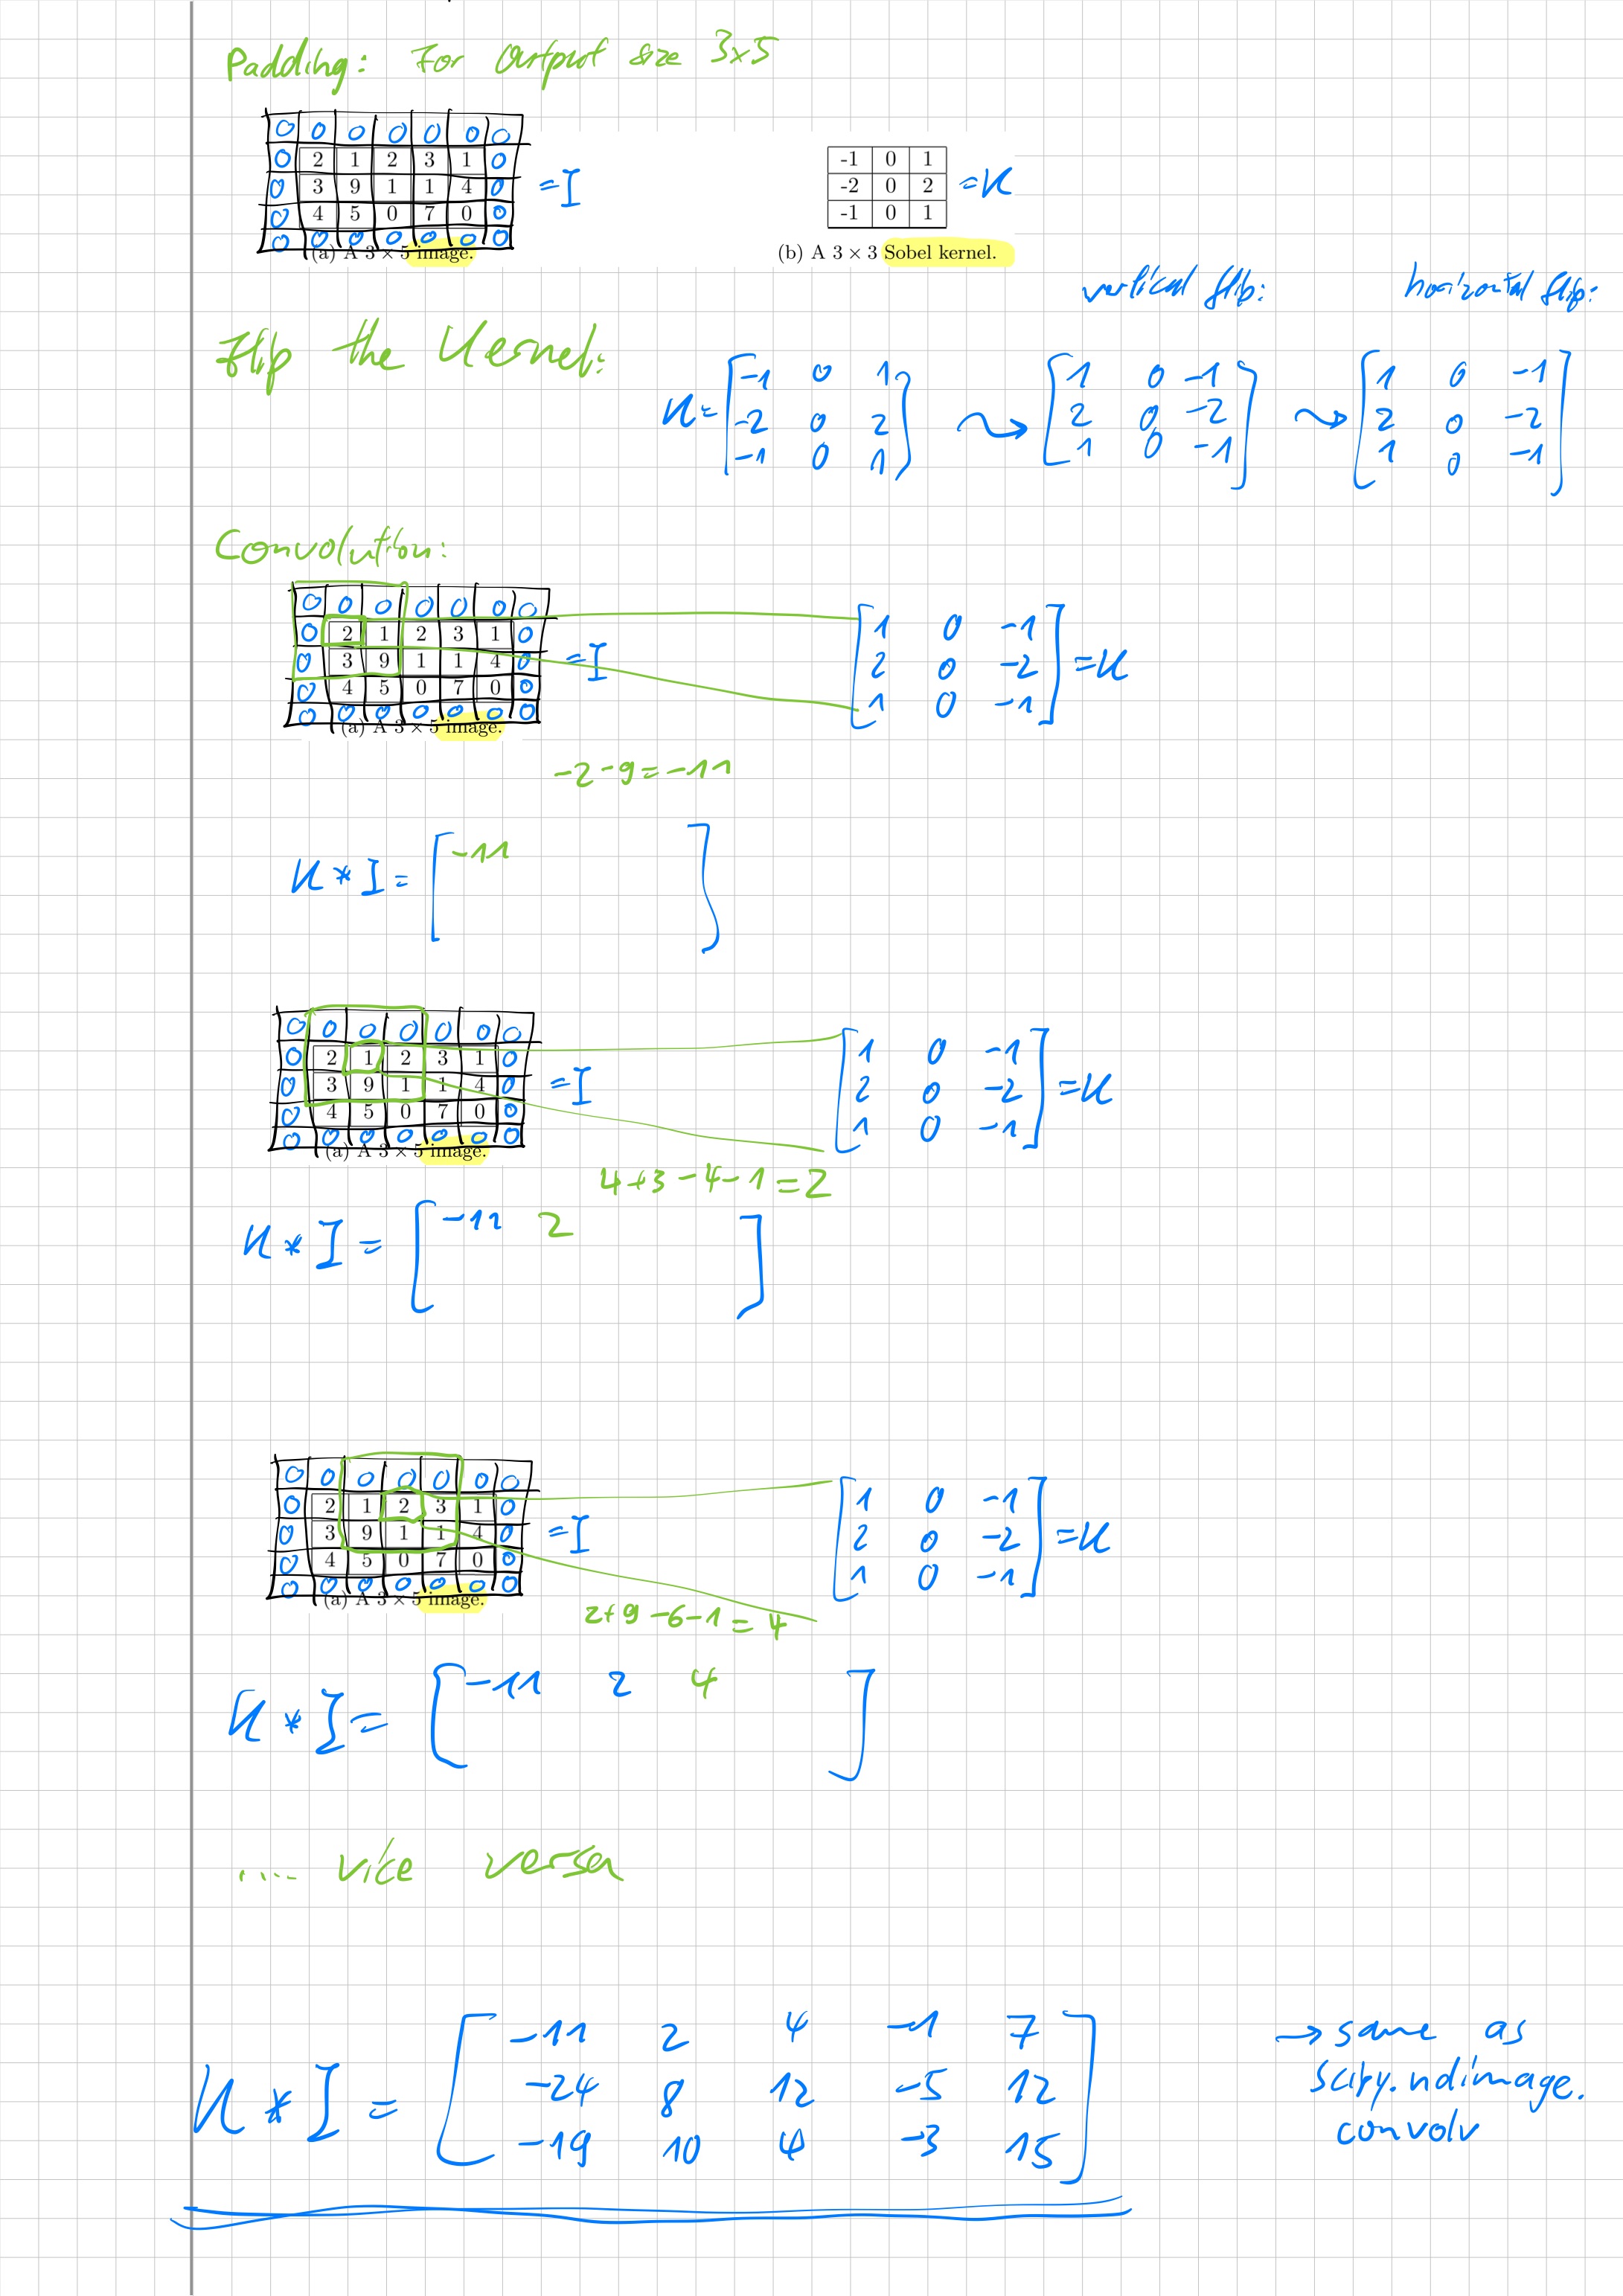 Padding: For Output size 3x5
0 0 0 0 0 0 0
0 2 1 2 3 1 0
0 3 9 1 1 4 0 =I
0 4 5 0 7 0 0
0 0 0 0 0 0 0
(a) A 3 × 5 image.
-1 0 1
-2 0 2 =K
-1 0 1
(b) A 3 × 3 Sobel kernel.
vertical flip: horizontal flip:
Flip the Kernel:
-1 0 1 1 0 -1 1 0 -1
K= -2 0 2 ⤳ 2 0 -2 ⤳ 2 0 -2
-1 0 1 1 0 -1 1 0 -1
Convolution:
0 0 0 0 0 0 0
0 2 1 2 3 1 0
0 3 9 1 1 4 0 =I
0 4 5 0 7 0 0
0 0 0 0 0 0 0
(a) A 3 × 5 image.
1 0 -1
2 0 -2 =K
1 0 -1
-2-9=-11
K * I = [-11 ]
0 0 0 0 0 0 0
0 2 1 2 3 1 0
0 3 9 1 1 4 0 =I
0 4 5 0 7 0 0
0 0 0 0 0 0 0
(a) A 3 × 5 image.
1 0 -1
2 0 -2 =K
1 0 -1
4+3-4-1=2
K * I = [-11 2 ]
0 0 0 0 0 0 0
0 2 1 2 3 1 0
0 3 9 1 1 4 0 =I
0 4 5 0 7 0 0
0 0 0 0 0 0 0
(a) A 3 × 5 image.
1 0 -1
2 0 -2 =K
1 0 -1
2+9-6-1=4
K * I = [-11 2 4 ]
.... vice versa
-11 2 4 -1 7
K * I = -24 8 12 -5 12
-19 10 4 -3 15
→ same as
scipy.ndimage.
convolv